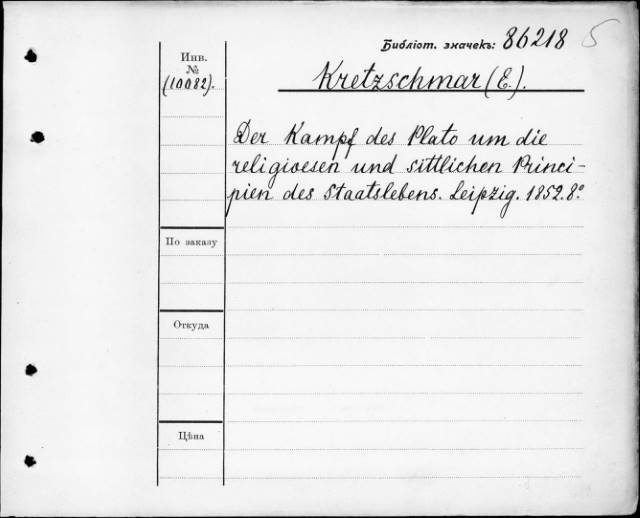 Библіот. значекъ: 86218 5
Инв.
№
(10082).
Kretzschmar (E.).
Der Kampf des Plato um die
religioesen und sittlichen Princi-
pien des Staatslebens. Leipzig. 1852. 8º
По заказу
Откуда
Цѣна